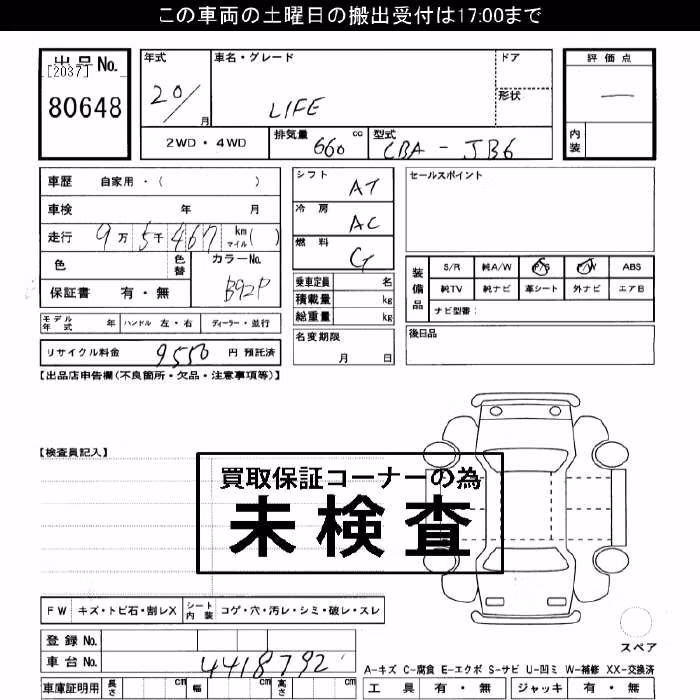 この車両の土曜日の搬出受付は17:00まで
出品No.
[2037]
80648
年式
20/
月
車名・グレード
LIFE
ドア
形状
評価点
—
内装
2WD・4WD
排気量
660
cc
型式
CBA - JB6
車歴 自家用・( )
車検 年 月
走行 9万5千467 km マイル ( )
色
色替
カラーNo.
B92P
保証書 有・無
シフト
AT
冷房
AC
燃料
G
セールスポイント
装備品
S/R 純A/W P/S P/W ABS
純TV 純ナビ 革シート 外ナビ エアB
ナビ型番:
乗車定員 名
積載量 kg
総重量 kg
モデル年式 年 ハンドル 左・右 ディーラー・並行
名変期限
月 日
後日品
リサイクル料金 9550 円 預託済
【出品店申告欄(不良箇所・欠品・注意事項等)】
【検査員記入】
買取保証コーナーの為
未検査
FW キズ・トビ石・割レX シート内装 コゲ・穴・汚レ・シミ・破レ・スレ
登録No.
車台No. 4418792
スペア
A-キズ C-腐食 E-エクボ S-サビ U-凹ミ W-補修 XX-交換済
車庫証明用 長さ cm 幅 cm 高さ cm
工具 有・無 ジャッキ 有・無